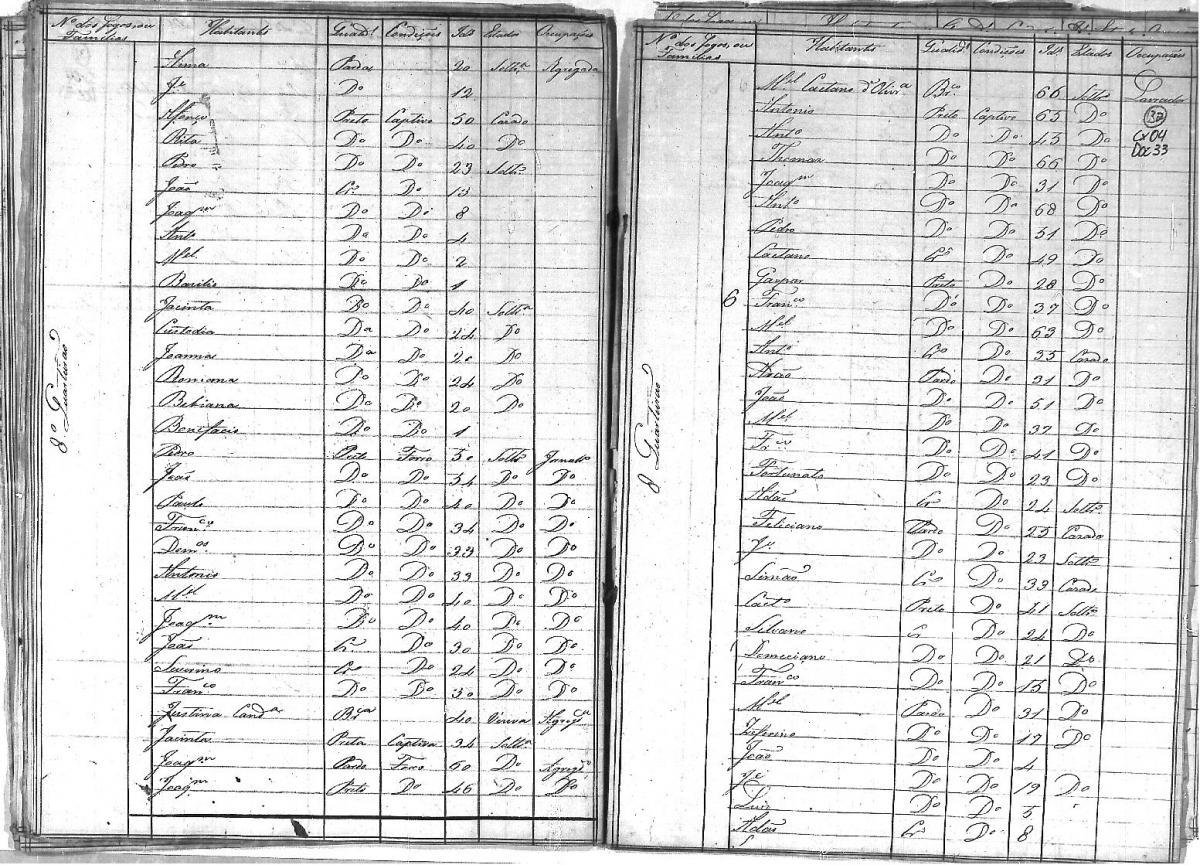 Nº dos Fogos, ou Familias Habitante Qualidᵉ Condições Idˢ Estados Occupações
8º Quarteirão
Anna Parda 20 Solthᵃ Agregada
Jᵉ Dº 12
Afonço Preto Captivo 50 Casado
Rita Dº Dº 40 Dº
Pedro Dº Dº 23 Solthº
João Crº Dº 13
Joaqᵐ Dº Dº 8
Antº Dº Dº 4
Mᵉˡ Dº Dº 2
Bazilio Dº Dº 1
Jacinta Dº Dº 40 Solthᵃ
Custodia Dª Dº 24 Dº
Joanna Dª Dº 20 Dº
Romana Dº Dº 24 Dº
Bebiana Dº Dº 20 Dº
Bonifacio Dº Dº 1
Pedro Preto Forro 50 Solthº
João Dº Dº 54 Dº Dº
Paulo Dº Dº 40 Dº Dº
Franᶜº Dº Dº 34 Dº Dº
Domᵒˢ Dº Dº 33 Dº Dº
Antonio Dº Dº 39 Dº Dº
Mᵉˡ Dº Dº 40 Dº Dº
Joaqᵐ Dº Dº 40 Dº Dº
João Cr. Dº 30 Dº Dº
Severino Crº Dº 24 Dº Dº
Franᶜº Dº Dº 30 Dº Dº
Justina Candᵃ Brᶜᵃ 40 Viuva Agregᵃ
Jacinta Preta Captiva 34 Solthᵃ
Joaqᵐ Pardo Forro 60 Dº Agregº
Joaqᵐ Preto Dº 46 Dº Dº
Nº dos Fogos, ou Familias Habitante Qualidᵉ Condições Idˢ Estados Occupações
8 Quarteirão
6
6 Mᵉˡ Caetano d'Olivrᵃ Brᶜº 66 Solthº Lavrador
Antonio Preto Captivo 65 Dº
37
Cx 04
Doc 33
Antº Dº Dº 45 Dº
Thomaz Dº Dº 66 Dº
Joaqᵐ Dº Dº 31 Dº
Antº Dº Dº 68 Dº
Pedro Dº Dº 51 Dº
Caetano Crº Dº 49 Dº
Gaspar Preto Dº 28 Dº
Franᶜº Dº Dº 37 Dº
Mᵉˡ Dº Dº 63 Dº
Antº Crº Dº 35 Casado
Pardo Dº 31 Dº
João Dº Dº 51 Dº
Mᵉˡ Dº Dº 37 Dº
Frᶜº Dº Dº 41 Dº
Fortunato Dº Dº 23 Dº
Adão Crº Dº 24 Solthº
Feliciano Pardo Dº 25 Casado
Jᵉ Dº Dº 23 Solthº
Simão Crº Dº 39 Casado
Caetº Preto Dº 41 Solthº
Silvano Cr Dº 24 Dº
Domeciano Dº Dº 21 Dº
Franᶜº Dº Dº 15 Dº
Mᵉˡ Pardo Dº 31 Dº
Zeferino Dº Dº 17 Dº
João Dº Dº 4
Jᵉ Dº Dº 19 Dº
Luiz Dº Dº 5
Adão Crº Dº 8